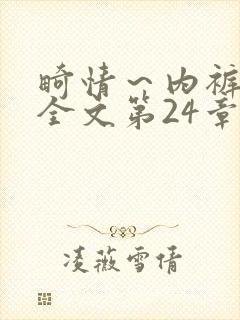 畸情～内裤
全文第24章
凌薇雪倩